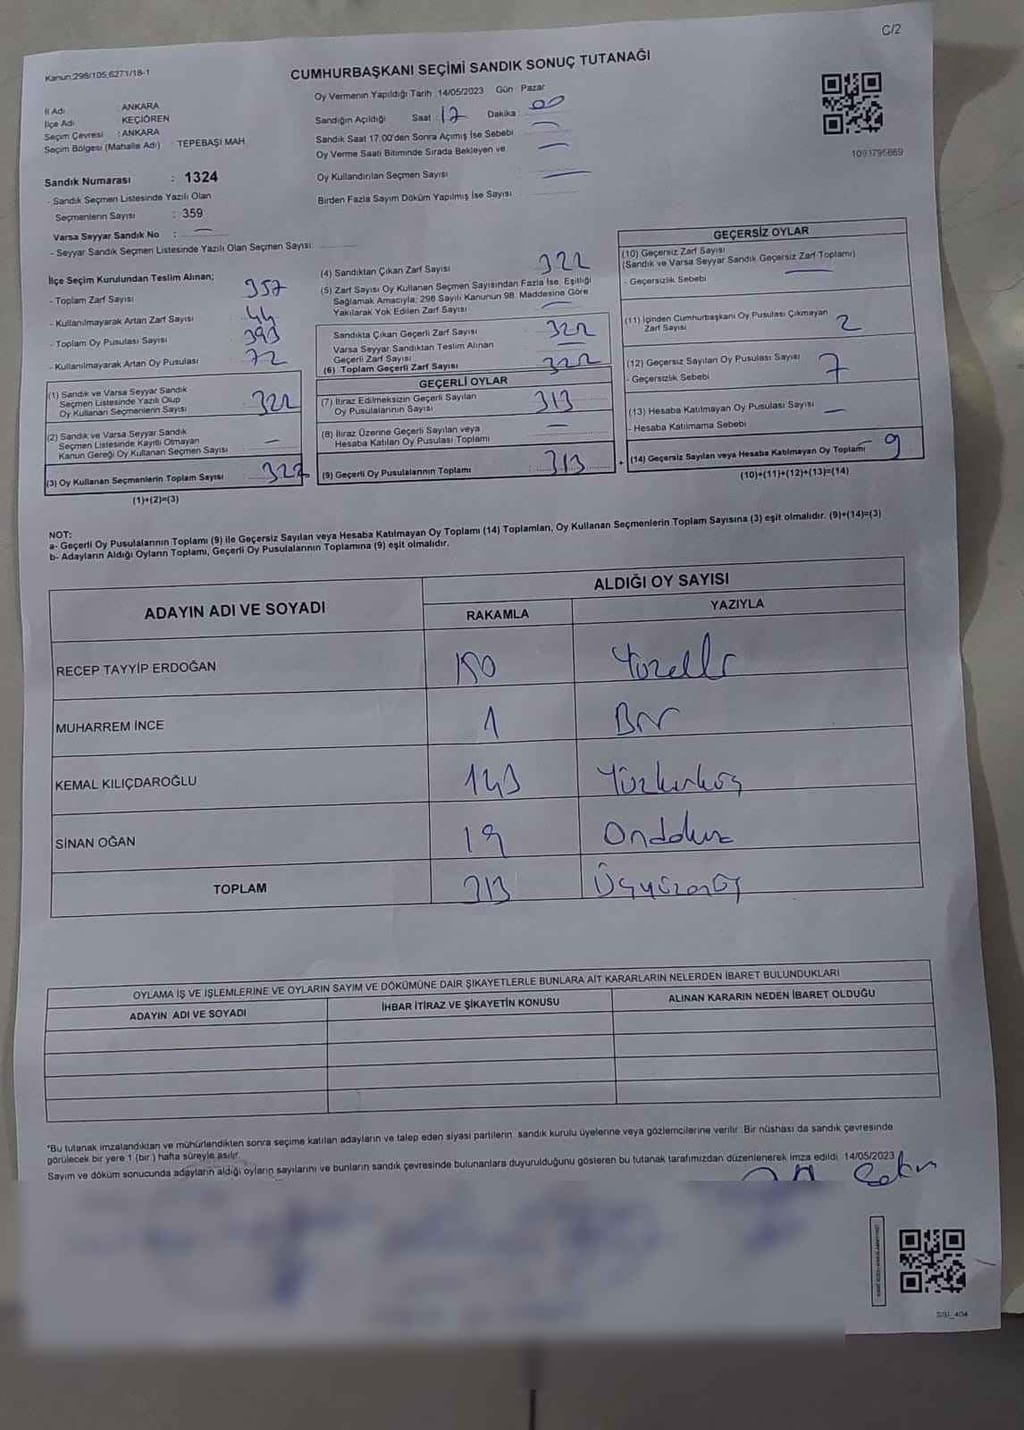 C/2
Kanun:298/105;6271/18-1
CUMHURBAŞKANI SEÇİMİ SANDIK SONUÇ TUTANAĞI
İl Adı : ANKARA
İlçe Adı : KEÇİÖREN
Seçim Çevresi : ANKARA
Seçim Bölgesi (Mahalle Adı) : TEPEBAŞI MAH
Sandık Numarası : 1324
- Sandık Seçmen Listesinde Yazılı Olan
Seçmenlerin Sayısı : 359
Varsa Seyyar Sandık No : —
- Seyyar Sandık Seçmen Listesinde Yazılı Olan Seçmen Sayısı:
Oy Vermenin Yapıldığı Tarih :14/05/2023 Gün : Pazar
Sandığın Açıldığı Saat : 17 Dakika : 00
Sandık Saat 17.00'den Sonra Açımış İse Sebebi —
Oy Verme Saati Bitiminde Sırada Bekleyen ve
Oy Kullandırılan Seçmen Sayısı —
Birden Fazla Sayım Döküm Yapılmış İse Sayısı
İlçe Seçim Kurulundan Teslim Alınan;
- Toplam Zarf Sayısı 357
- Kullanılmayarak Artan Zarf Sayısı 44
- Toplam Oy Pusulası Sayısı 393
- Kullanılmayarak Artan Oy Pusulası 72
(1) Sandık ve Varsa Seyyar Sandık
Seçmen Listesinde Yazılı Olup
Oy Kullanan Seçmenlerin Sayısı 322
(2) Sandık ve Varsa Seyyar Sandık
Seçmen Listesinde Kayıtlı Olmayan
Kanun Gereği Oy Kullanan Seçmen Sayısı —
(3) Oy Kullanan Seçmenlerin Toplam Sayısı 322
(1)+(2)=(3)
(4) Sandıktan Çıkan Zarf Sayısı 322
(5) Zarf Sayısı Oy Kullanan Seçmen Sayısından Fazla İse, Eşitliği
Sağlamak Amacıyla; 298 Sayılı Kanunun 98. Maddesine Göre
Yakılarak Yok Edilen Zarf Sayısı —
Sandıkta Çıkan Geçerli Zarf Sayısı 322
Varsa Seyyar Sandıktan Teslim Alınan
Geçerli Zarf Sayısı —
(6) Toplam Geçerli Zarf Sayısı 322
GEÇERLİ OYLAR
(7) İtiraz Edilmeksizin Geçerli Sayılan
Oy Pusulalarının Sayısı 313
(8) İtiraz Üzerine Geçerli Sayılan veya
Hesaba Katılan Oy Pusulası Toplamı —
(9) Geçerli Oy Pusulalarının Toplamı 313
1091795669
GEÇERSİZ OYLAR
(10) Geçersiz Zarf Sayısı
(Sandık ve Varsa Seyyar Sandık Geçersiz Zarf Toplamı)
- Geçersizlik Sebebi —
(11) İçinden Cumhurbaşkanı Oy Pusulası Çıkmayan
Zarf Sayısı 2
(12) Geçersiz Sayılan Oy Pusulası Sayısı 7
- Geçersizlik Sebebi
(13) Hesaba Katılmayan Oy Pusulası Sayısı —
- Hesaba Katılmama Sebebi
+ (14) Geçersiz Sayılan veya Hesaba Katılmayan Oy Toplamı 9
(10)+(11)+(12)+(13)=(14)
NOT:
a- Geçerli Oy Pusulalarının Toplamı (9) ile Geçersiz Sayılan veya Hesaba Katılmayan Oy Toplamı (14) Toplamları, Oy Kullanan Seçmenlerin Toplam Sayısına (3) eşit olmalıdır. (9)+(14)=(3)
b- Adayların Aldığı Oyların Toplamı, Geçerli Oy Pusulalarının Toplamına (9) eşit olmalıdır.
ADAYIN ADI VE SOYADI ALDIĞI OY SAYISI
RAKAMLA YAZIYLA
RECEP TAYYİP ERDOĞAN 150 Yüzelli
MUHARREM İNCE 1 Bir
KEMAL KILIÇDAROĞLU 143 Yüzkırküç
SİNAN OĞAN 19 Ondokuz
TOPLAM 313 Üçyüzonüç
OYLAMA İŞ VE İŞLEMLERİNE VE OYLARIN SAYIM VE DÖKÜMÜNE DAİR ŞİKAYETLERLE BUNLARA AİT KARARLARIN NELERDEN İBARET BULUNDUKLARI
ADAYIN ADI VE SOYADI İHBAR İTİRAZ VE ŞİKAYETİN KONUSU ALINAN KARARIN NEDEN İBARET OLDUĞU
*Bu tutanak imzalandıktan ve mühürlendikten sonra seçime katılan adayların ve talep eden siyasi partilerin sandık kurulu üyelerine veya gözlemcilerine verilir. Bir nüshası da sandık çevresinde
görülecek bir yere 1 (bir) hafta süreyle asılır.
Sayım ve döküm sonucunda adayların aldığı oyların sayılarını ve bunların sandık çevresinde bulunanlara duyurulduğunu gösteren bu tutanak tarafımızdan düzenlenerek imza edildi. 14/05/2023
SSI_404